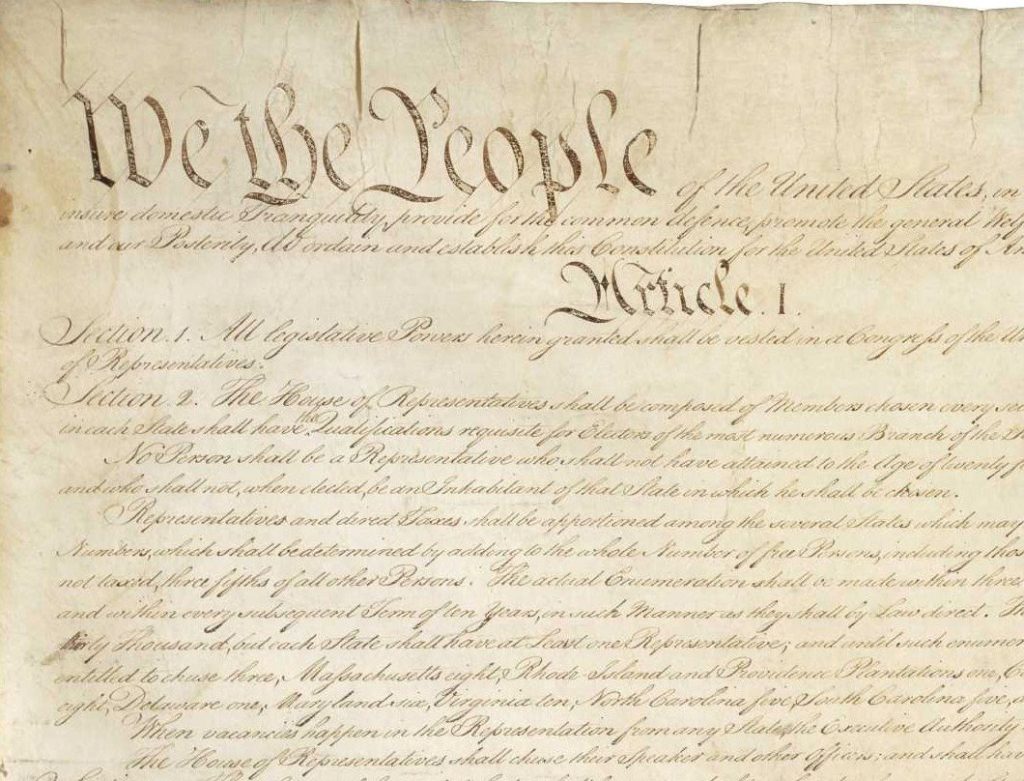 We the People of the United States, in
insure domestic Tranquility, provide for the common defence, promote the general Welf
and our Posterity, do ordain and establish this Constitution for the United States of Am
Article. I.
Section. 1. All legislative Powers herein granted shall be vested in a Congress of the Un
of Representatives.
Section. 2. The House of Representatives shall be composed of Members chosen every sec
in each State shall have the Qualifications requisite for Electors of the most numerous Branch of the
No Person shall be a Representative who shall not have attained to the Age of twenty fi
and who shall not, when elected, be an Inhabitant of that State in which he shall be chosen.
Representatives and direct Taxes shall be apportioned among the several States which may
Numbers, which shall be determined by adding to the whole Number of free Persons, including thos
not taxed, three fifths of all other Persons. The actual Enumeration shall be made within three
and within every subsequent Term of ten Years, in such Manner as they shall by Law direct. Th
thirty Thousand, but each State shall have at Least one Representative; and until such enumer
entitled to chuse three, Massachusetts eight, Rhode-Island and Providence Plantations one, C
eight, Delaware one, Maryland six, Virginia ten, North Carolina five, South Carolina five, a
When vacancies happen in the Representation from any State, the Executive Authority
The House of Representatives shall chuse their Speaker and other Officers; and shall have